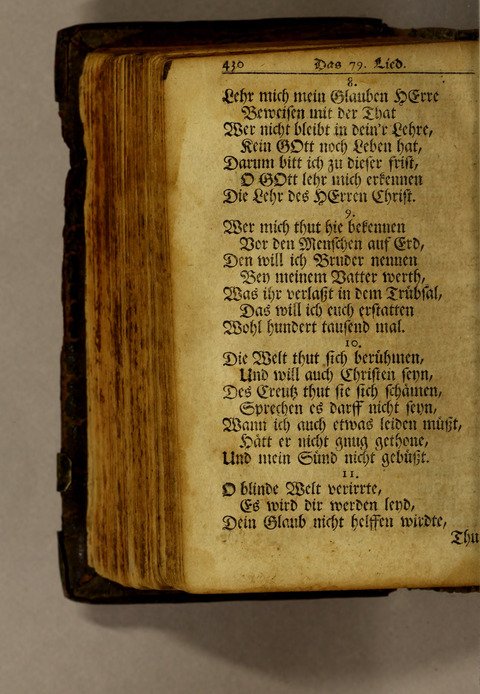 430 Das 79. Lied.
8.
Lehr mich mein Glauben HErre
Beweisen mit der That
Wer nicht bleibt in dein'r Lehre,
Kein GOtt noch Leben hat,
Darum bitt ich zu dieser frist,
O GOtt lehr mich erkennen
Die Lehr des HErren Christ.
9.
Wer mich thut hie bekennen
Vor den Menschen auf Erd,
Den will ich Bruder nennen
Bey meinem Vatter werth,
Was ihr verlaßt in dem Trübsal,
Das will ich euch erstatten
Wohl hundert tausend mal.
10.
Die Welt thut sich berühmen,
Und will auch Christen seyn,
Des Creutz thut sie sich schämen,
Sprechen es darff nicht seyn,
Wann ich auch etwas leiden müßt,
Hätt er nicht gnug gethone,
Und mein Sünd nicht gebüßt.
11.
O blinde Welt verirrte,
Es wird dir werden leyd,
Dein Glaub nicht helffen wirdte,
Thu